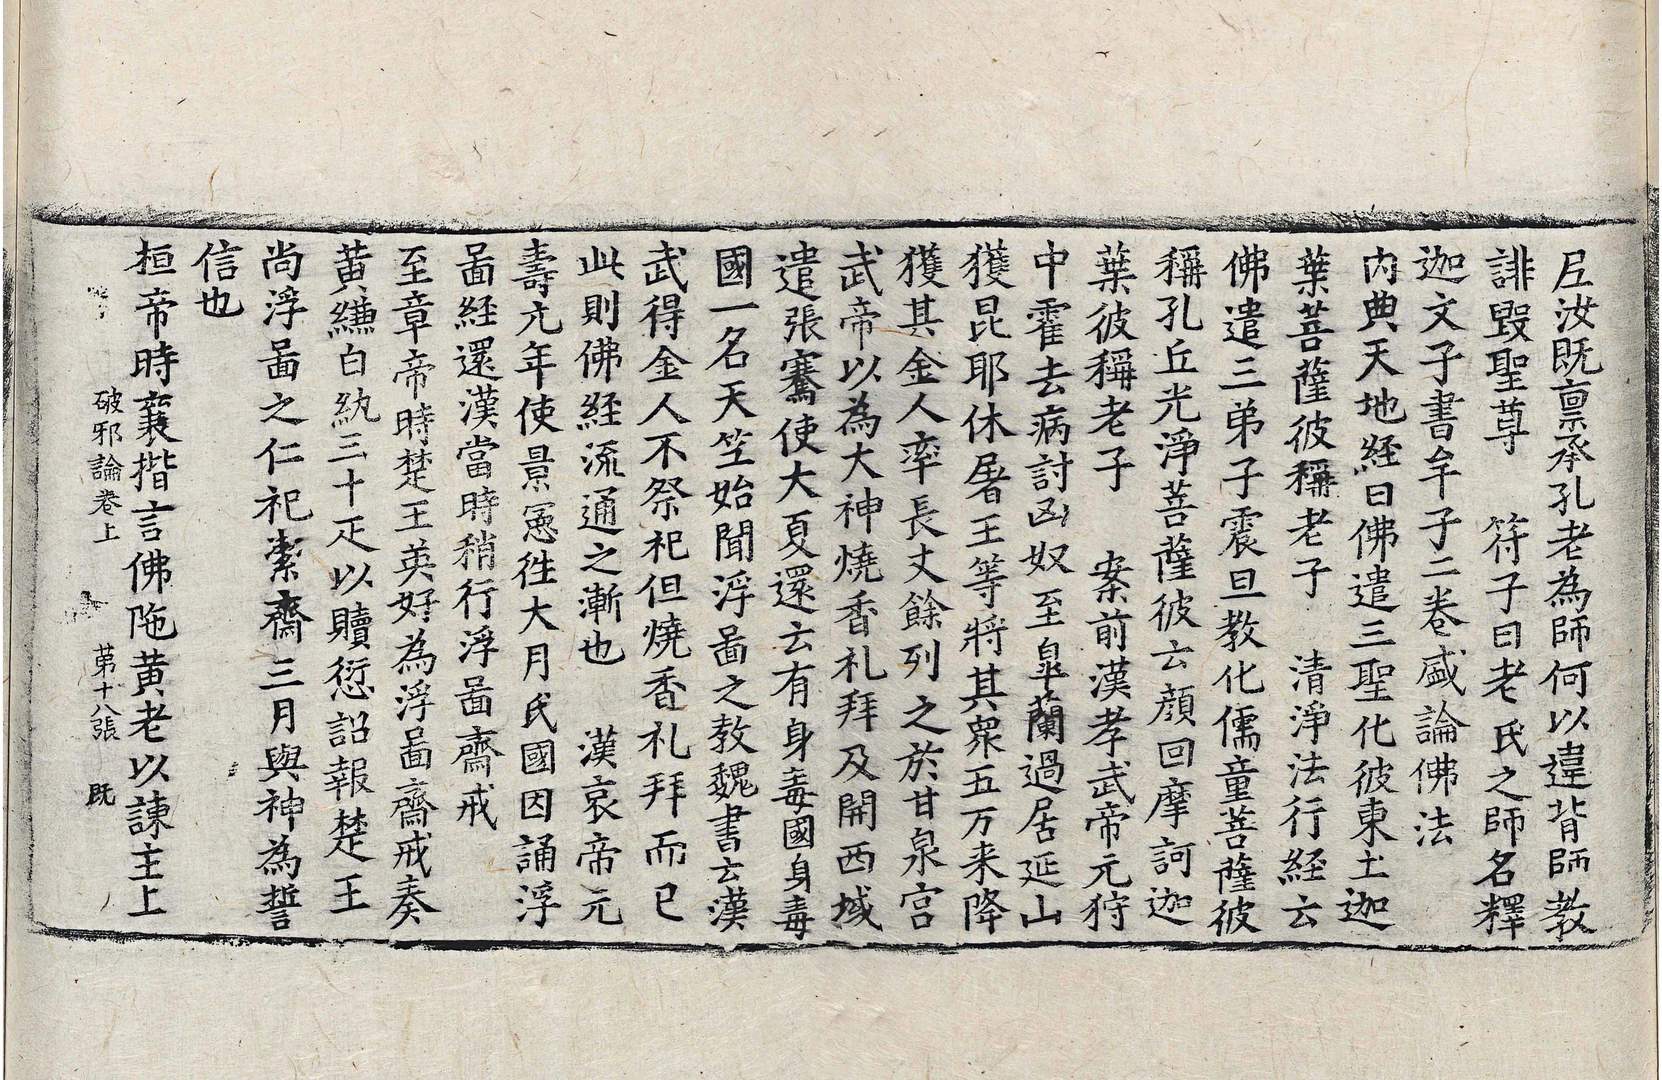 丘汝既禀承孔老為師何以違背師教
誹毀聖尊　符子曰老氏之師名釋
迦文子書牟子二卷盛論佛法
内典天地経曰佛遣三聖化彼東土迦
葉菩薩彼稱老子　清淨法行経云
佛遣三弟子震旦教化儒童菩薩彼
稱孔丘光淨菩薩彼云顔回摩訶迦
葉彼稱老子　案前漢孝武帝元狩
中霍去病討凶奴至皐蘭過居延山
獲昆耶休屠王等將其衆五万来降
獲其金人率長丈餘列之於甘泉宮
武帝以為大神燒香礼拜及開西域
遣張騫使大夏還云有身毒國身毒
國一名天竺始聞浮啚之教魏書云漢
武得金人不祭祀但燒香礼拜而已
此則佛経流通之漸也　漢哀帝元
壽元年使景憲徃大月氏國因誦浮
啚経還漢當時稍行浮啚齋戒
至章帝時楚王英好為浮啚齋戒奏
黄縑白紈三十疋以贖愆詔報楚王
尚浮啚之仁祀潔齋三月與神為誓
信也
桓帝時襄揩言佛陁黄老以諫主上
破邪論卷上　第十八張　既